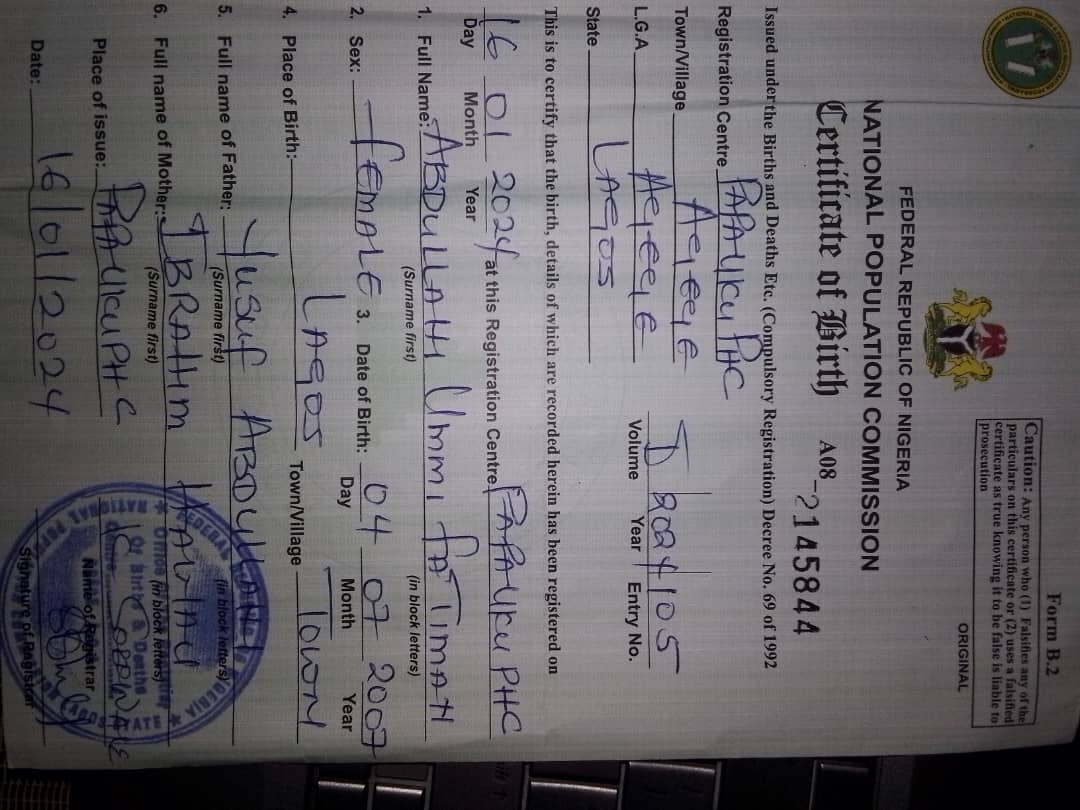 Form B.2
Caution: Any person who (1) Falsifies any of the
particulars on this certificate or (2) uses a falsified
certificate as true knowing it to be false is liable to
prosecution
ORIGINAL
FEDERAL REPUBLIC OF NIGERIA
NATIONAL POPULATION COMMISSION
Certificate of Birth A08-2145844
Issued under the Births and Deaths Etc. (Compulsory Registration) Decree No. 69 of 1992
Registration Centre PAPAUKU PHC
Town/Village AGEGE I 2024 105
L.G.A AGEGE Volume Year Entry No.
State LAGOS
This is to certify that the birth, details of which are recorded herein has been registered on
16 01 2024 at this Registration Centre PAPAUKU PHC
Day Month Year
1. Full Name: ABDULLAHI Ummi FATIMAH
(Surname first) (in block letters)
2. Sex: FEMALE 3. Date of Birth: 04 07 2007
Day Month Year
4. Place of Birth: LAGOS Town/Village
5. Full name of Father: Yusuf ABDULLAHI
(Surname first) (in block letters)
6. Full name of Mother: IBRAHIM
(Surname first) (in block letters)
Place of issue: PAPAUKU PHC
Name of Registrar
Date: 16/01/2024
Signature of Registrar